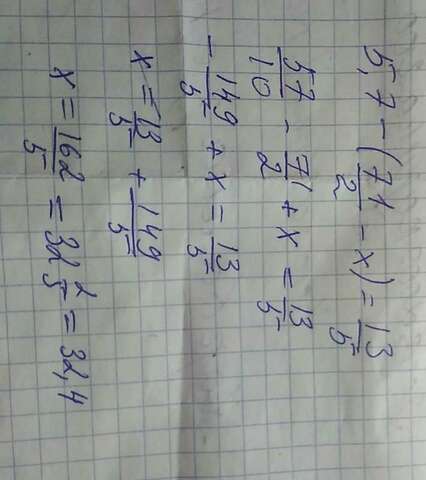 5,7 - (71/2 - x) = 13/5
57/10 - 71/2 + x = 13/5
- 149/5 + x = 13/5
x = 13/5 + 149/5
x = 162/5 = 32 2/5 = 32,4